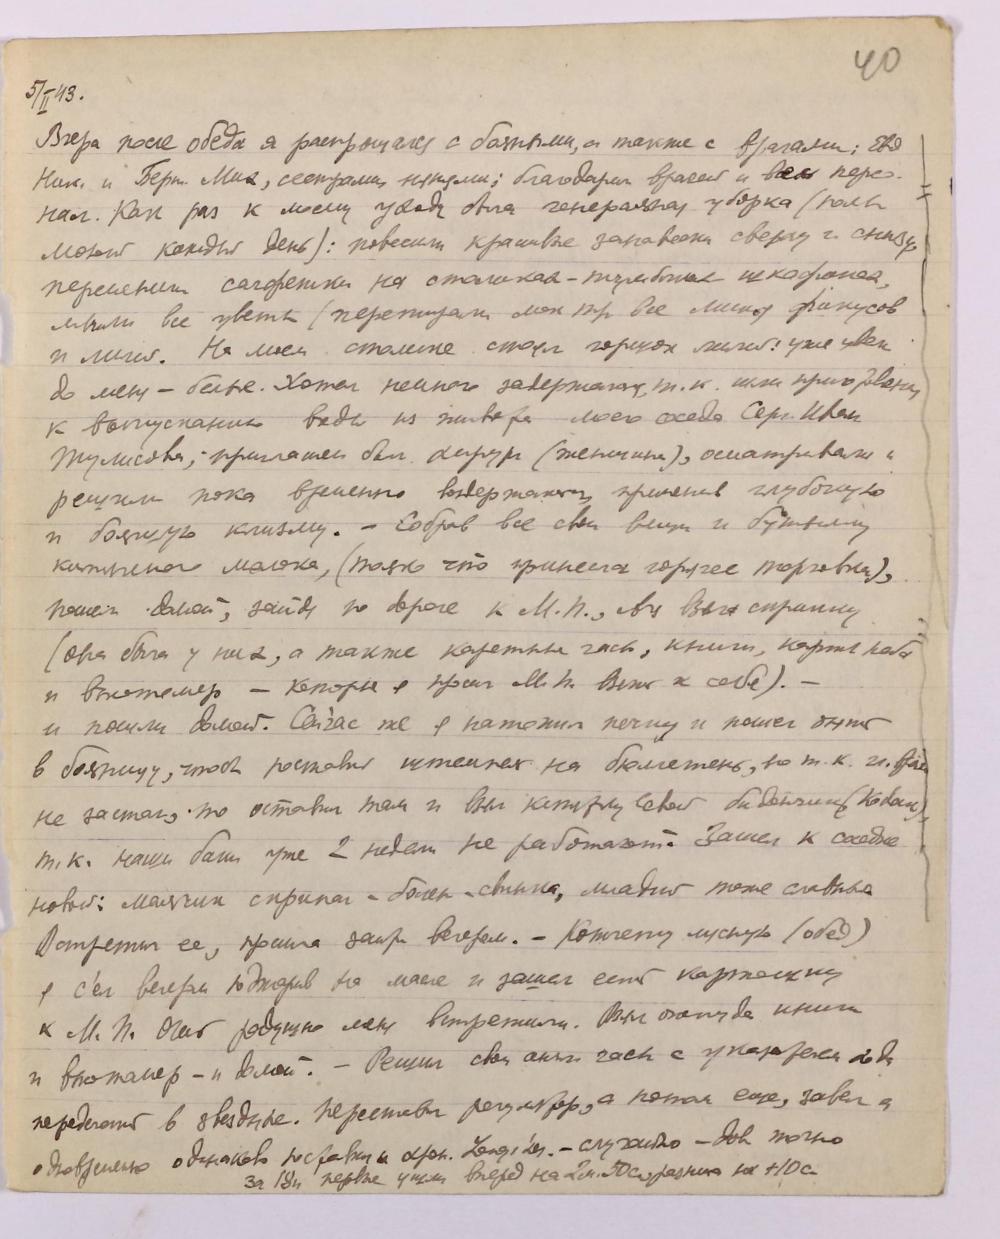 40
5/II 43.
Вчера после обеда я распрощался с больными, а также с врагами:
Ник. и Герт. Мих., сестрами нянями; благодарил врачей и весь персо-
нал. Как раз к моему уходу была генеральная уборка (полы
моют каждый день): повесили красивые занавески сверху и снизу,
переменили салфетки на столиках - тумбочках шкафчиках,
мыли все цветы (перетирали мокр. тр. все листья фикусов
и лилий. На моем столике стоял горшок лилий: уже увял
до меня – белые. Хотел немного задержаться, т.к. шли приготовления
к выпусканию воды из живота моего соседа Серг. Иван.
приглашен был хирург (женщина), осматривали и
решили пока временно воздержаться, применив глубокую
и большую клизму. – Собрав все свои вещи и бутылку
кипяченого молока, (только что принесла горячее торговка),
пошел домой, зайдя по дороге к М.П., взял скрипку
(она была у них, а также каретные часы, книги, карты неба
и высотомер – которые я просил М.П. взять к себе). –
и пошли домой. Сейчас же я натопил печку и пошел опять
в больницу, чтоб поставить штемпель на бюллетень, но т.к. гл. врача
не застал, то оставил там и взял
т.к. наши бани уже 2 недели не работают. Зашел к соседке
новой: мальчик скрипач – болен – свинка, младший тоже
Встретил ее, просила завтра вечером. – Котлету мясную (обед)
я съел вечером поджарив на масле и зашел есть картошку
к М.П. Опять радушно меня встретили. Взял оттуда книги
и высотомер – и домой. – Решил свои часы с
переделать в звездные. Переставил регулятор, а потом еще, завел и
одновременно одинаково поставил и хрон. – слушаю – точно
за первые ушли вперед на 2м. 50с. разница на +10с